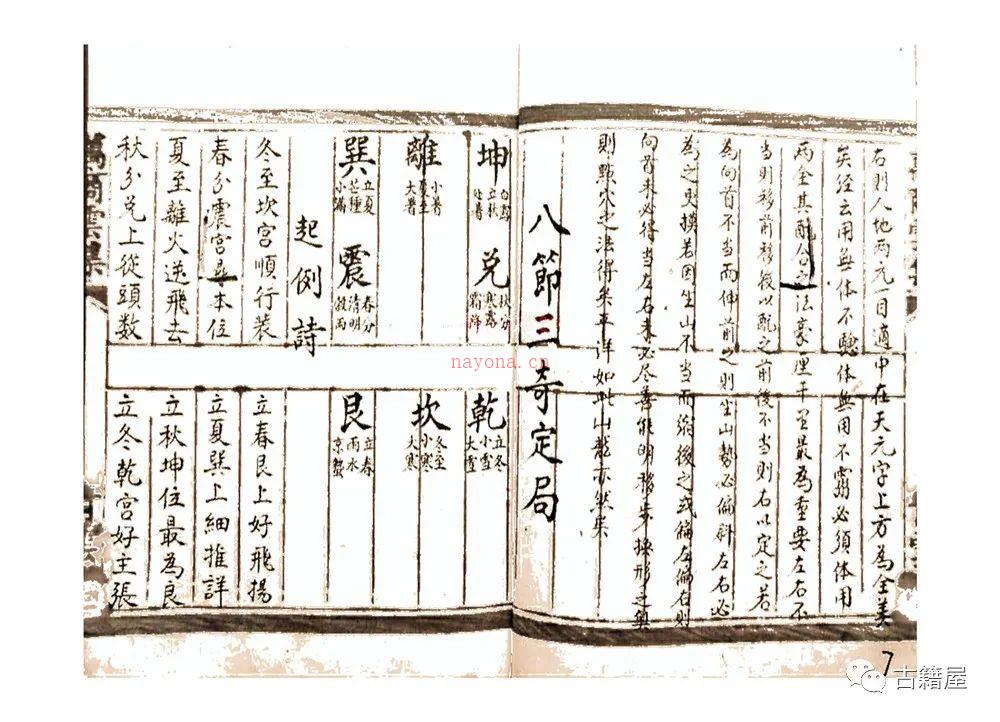 右則人地兩元一目適中在天元字上方為全美
矣経云用無体不驗体無用不灵必須体用
兩全其配合之法豪厘千里最為重要左右不
當則移前移後以配之前後不當則右以定之若
為向首不當而伸前之則坐山勢必偏斜左右必
為之更摸若因坐山不當而縮後之或偏左偏右則
向首来必得當左右来必尽善能明移步換形之藥
則點穴之法得矣平洋如此山龍亦然矣
八節三奇定局
坤 白露 立秋 處暑
兌 秋分 寒露 霜降
乾 立冬 小雪 大雪
離 小暑 夏至 大暑
坎 冬至 小寒 大寒
巽 立夏 芒種 小滿
震 春分 清明 穀雨
艮 立春 雨水 京蟄
起例詩
冬至坎宮順行裝
立春艮上好飛揚
春分震宮尋本位
立夏巽上細推詳
夏至離火逆飛去
立秋坤位最為良
秋分兌上從頭數
立冬乾宮好主張
nayona.cn
7
古籍屋